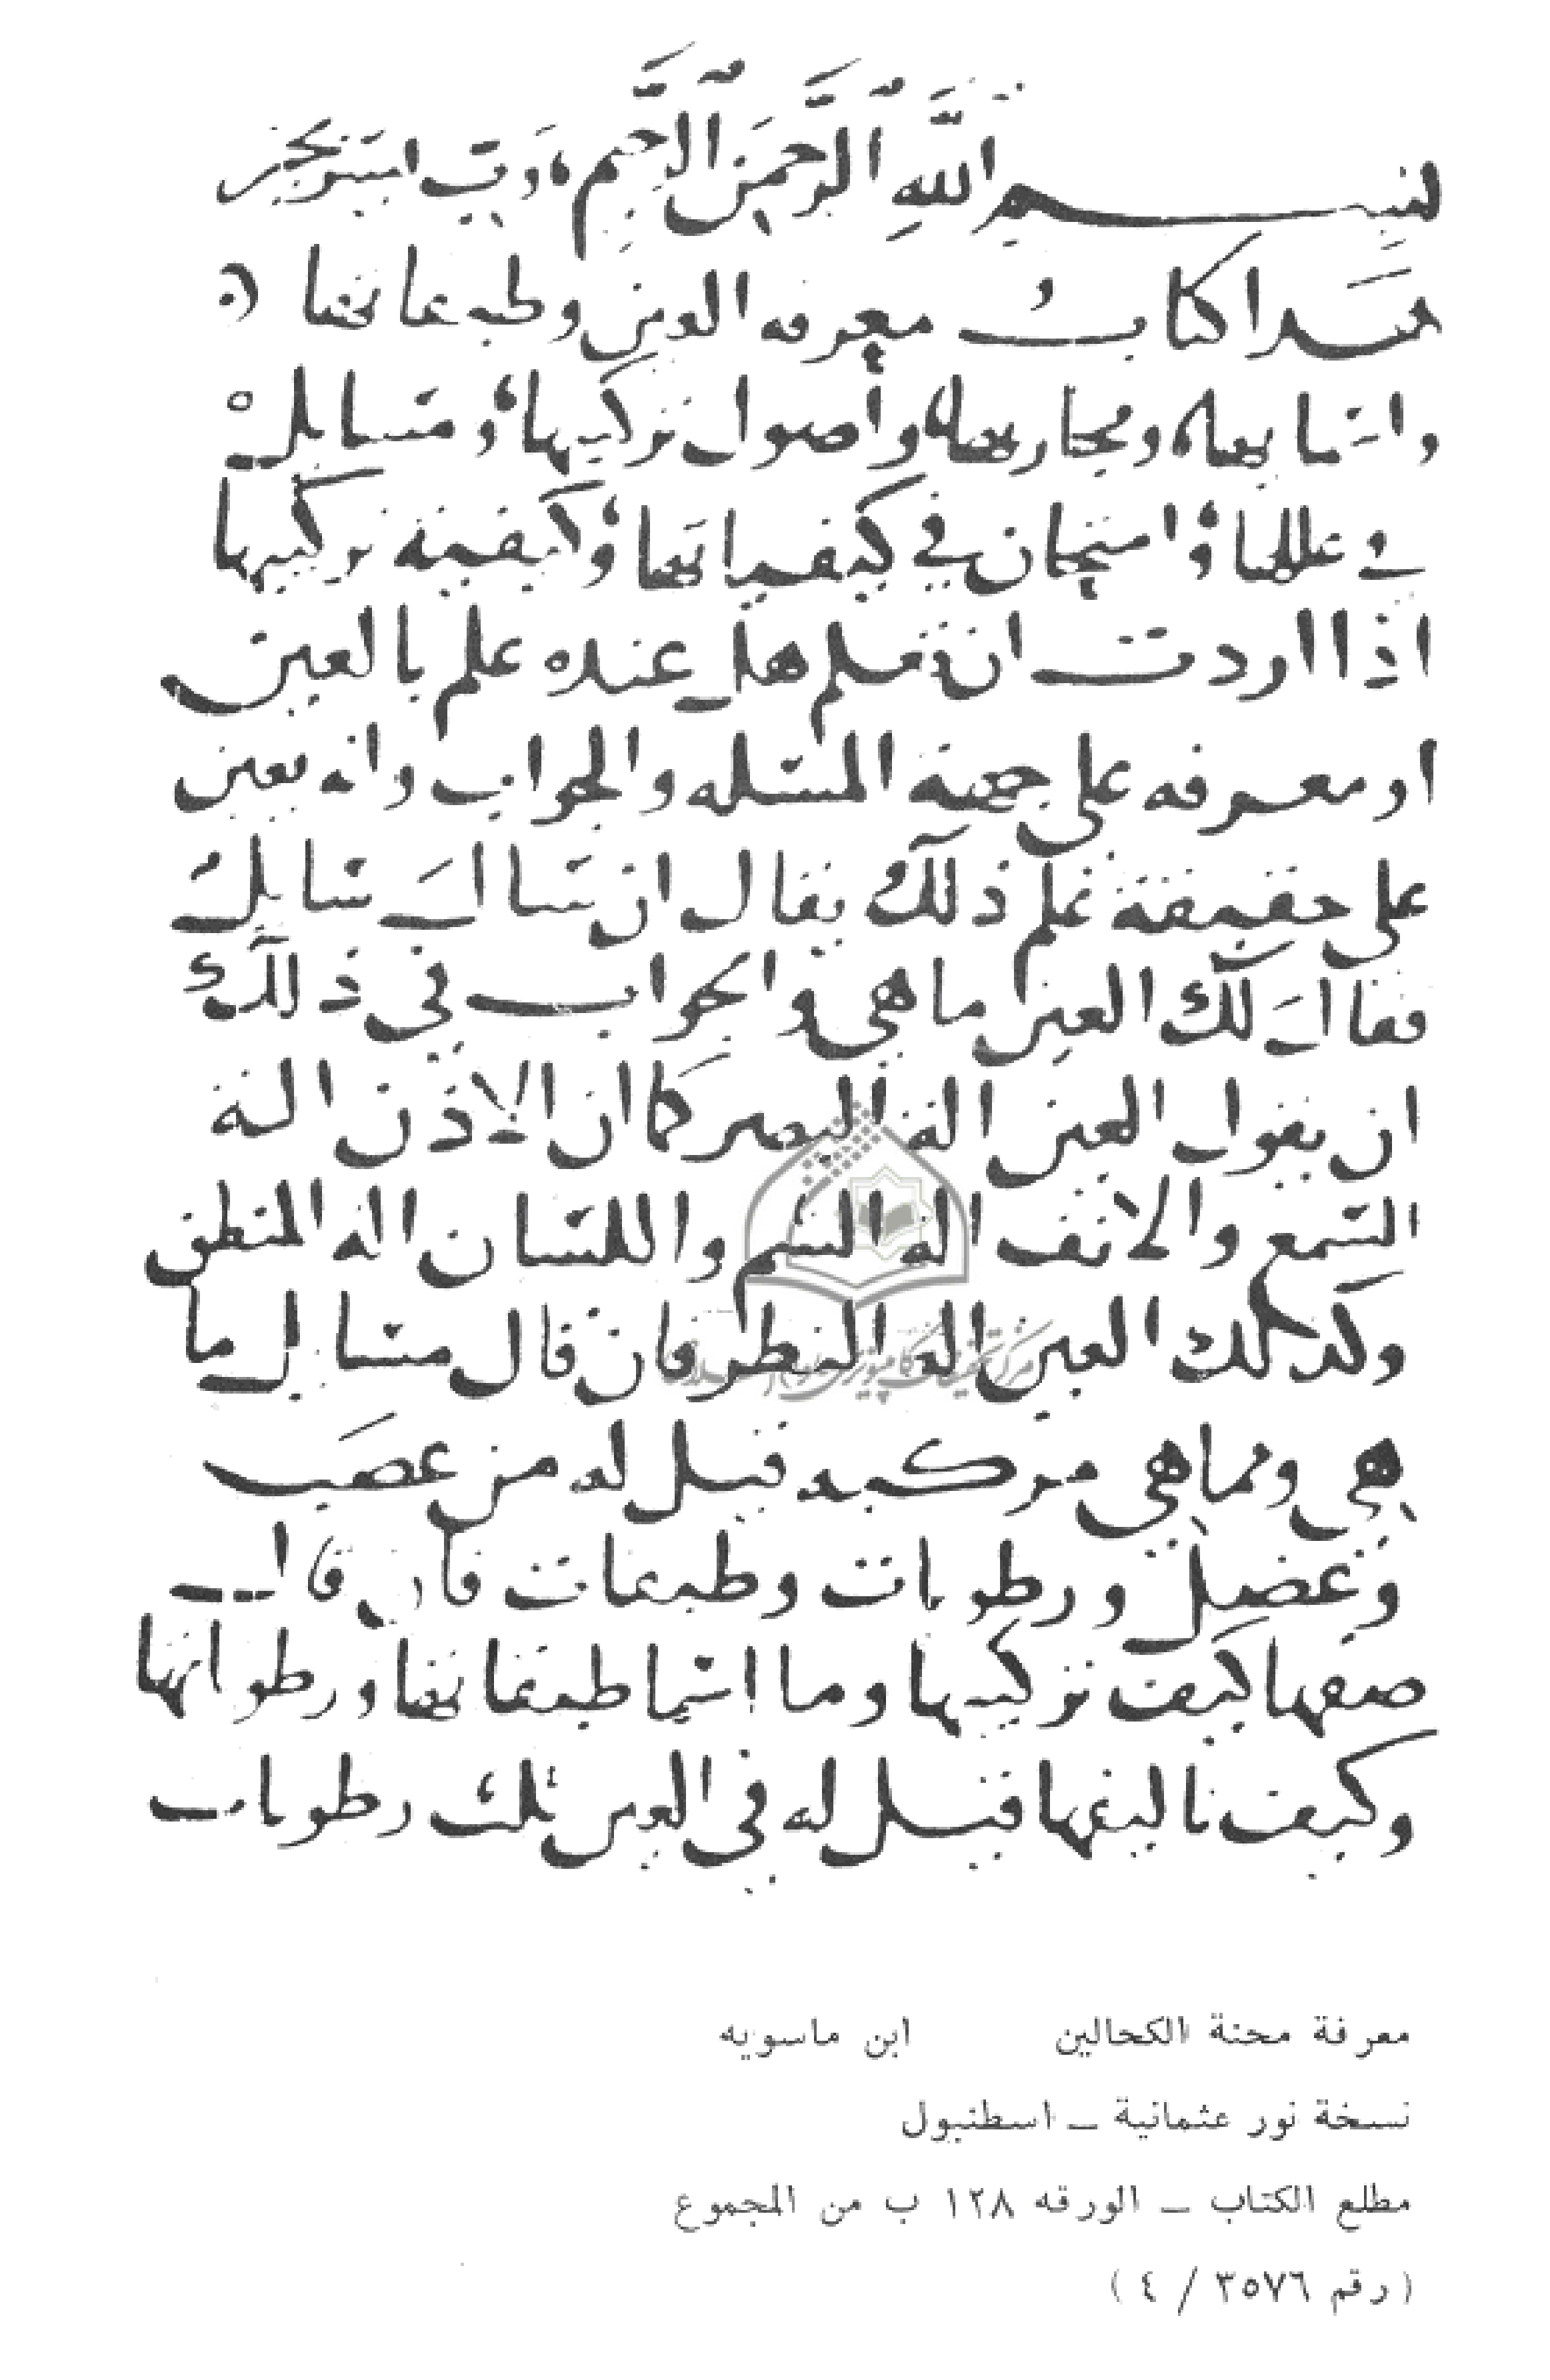 بسم الله الرحمن الرحيم وبه استعين
هذا كتاب معرفه العين وطبقاتها
واسبابها ومجاريها واصول تركيبها ومسايل
في عللها وامتحان في كيفياتها وكيفية تركيبها
اذا اردت ان تعلم هل عنده علم بالعين
او معرفه على جهة المسله والجواب وانه يعين
على حقيقة علم ذلك يقال ان سال سايل
فقال لك العين ما هي والجواب في ذلك
ان يقول العين الة البصر كما ان الاذن الة
السمع والانف الة الشم واللسان اله المنطق
وكذلك العين الة النظر فان قال سايل ما
هي ومما هي مركبه قيل له من عصب
وعضل ورطوبات وطبقات فان قال
صفها كيف تركيبها وما اسما طبقاتها ورطوباتها
وكيف تاليفها قيل له في العين ثلث رطوبات
معرفة محنة الكحالين ابن ماسويه
نسخة نور عثمانية – اسطنبول
مطلع الكتاب – الورقه ١٢٨ ب من المجموع
(رقم ٣٥٧٦ / ٤)